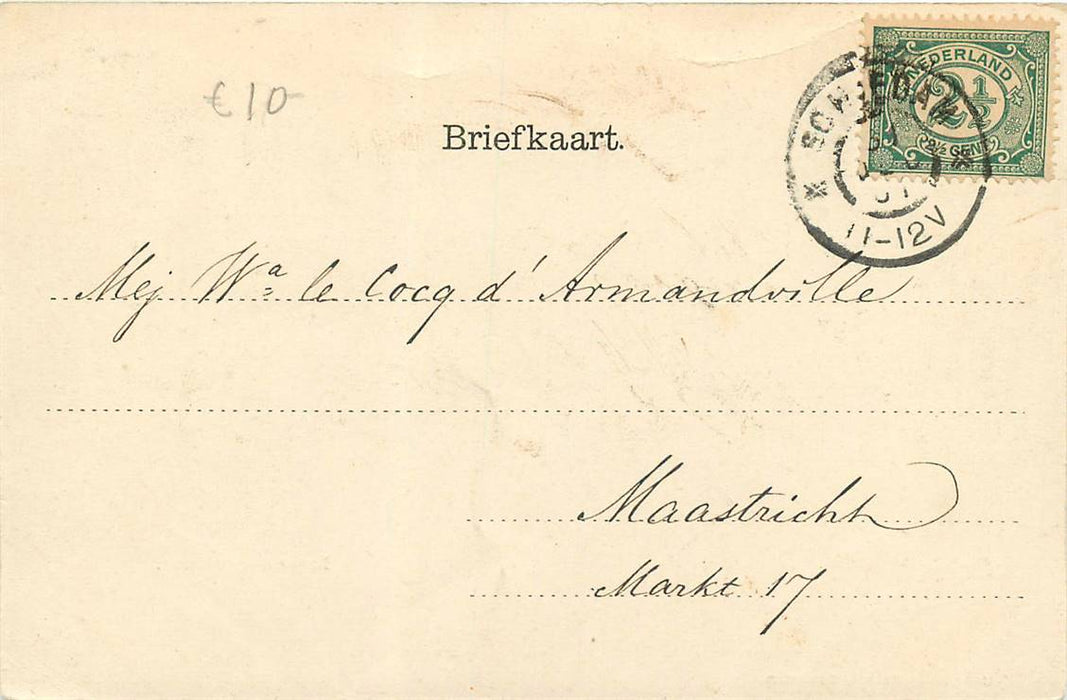 €10-
Briefkaart.
NEDERLAND
2½
2½ CENT
SCHIEDAM
11-12V
Mej Wa le Cocq d'Armandville
Maastricht
Markt 17